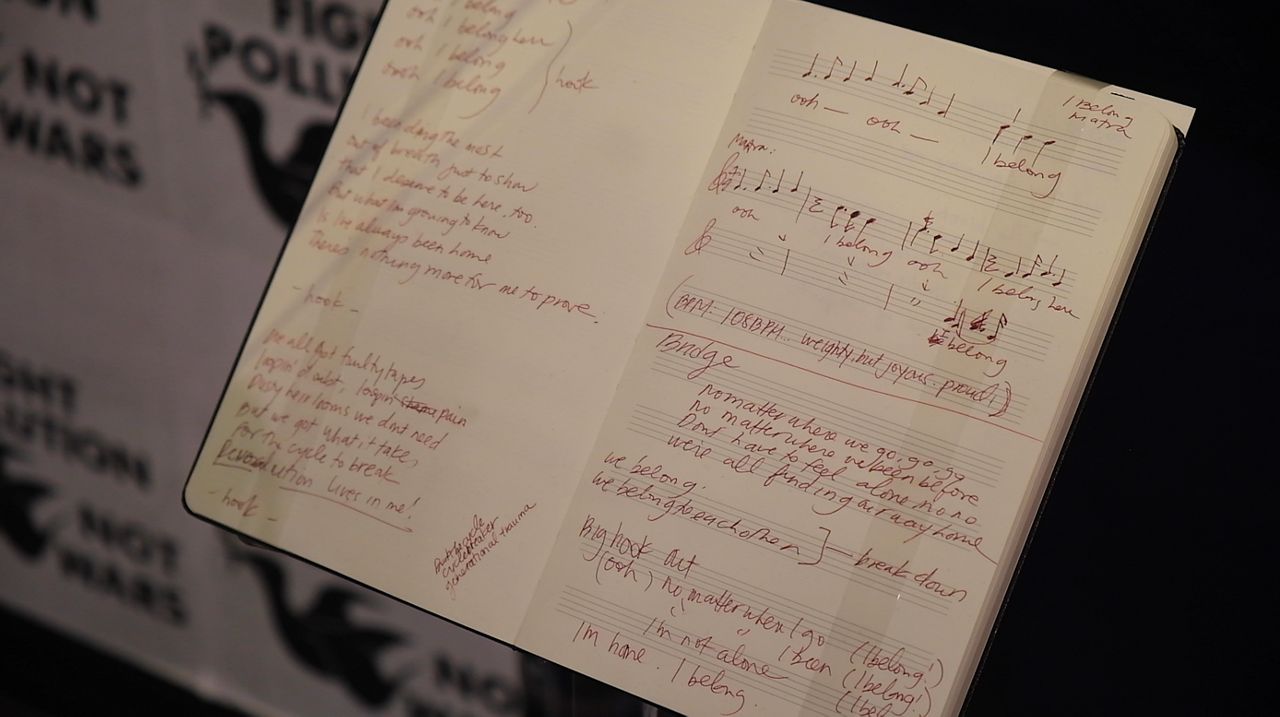 FIGHT
POLLU
NOT
WARS
GHT
LUTION
NOT
WARS
NO
ooh I belong
ooh I belong here
ooh I belong
oooh I belong
hook
I been doing the most
out of breath just to show
that I deserve to be here, too.
But what I'm growing to know
Is I've always been home
There's nothing more for me to prove.
- hook -
We all got faulty tapes
loopin' doubt, loopin' shame pain
Dusy heirlooms we dont need
But we got what it take,
for the cycle to break
Revolution lives in me!
- hook -
cycle
cyclebreaker
generational trauma
I Belong
Matra
ooh — ooh —
I belong
Matra:
ooh I belong ooh I belong here
I belong
(BPM: 108BPM.. weighty. but joyous. proud!)
Bridge
no matter where we go, go, go
no matter where we've been before
Dont have to feel alone. no no
we're all finding our way home
we belong.
we belong to each other
break down
Big hook out
(ooh) no matter where I go (I belong!)
" I been (I belong!)
I'm not alone (I bel
I'm home. I belong.